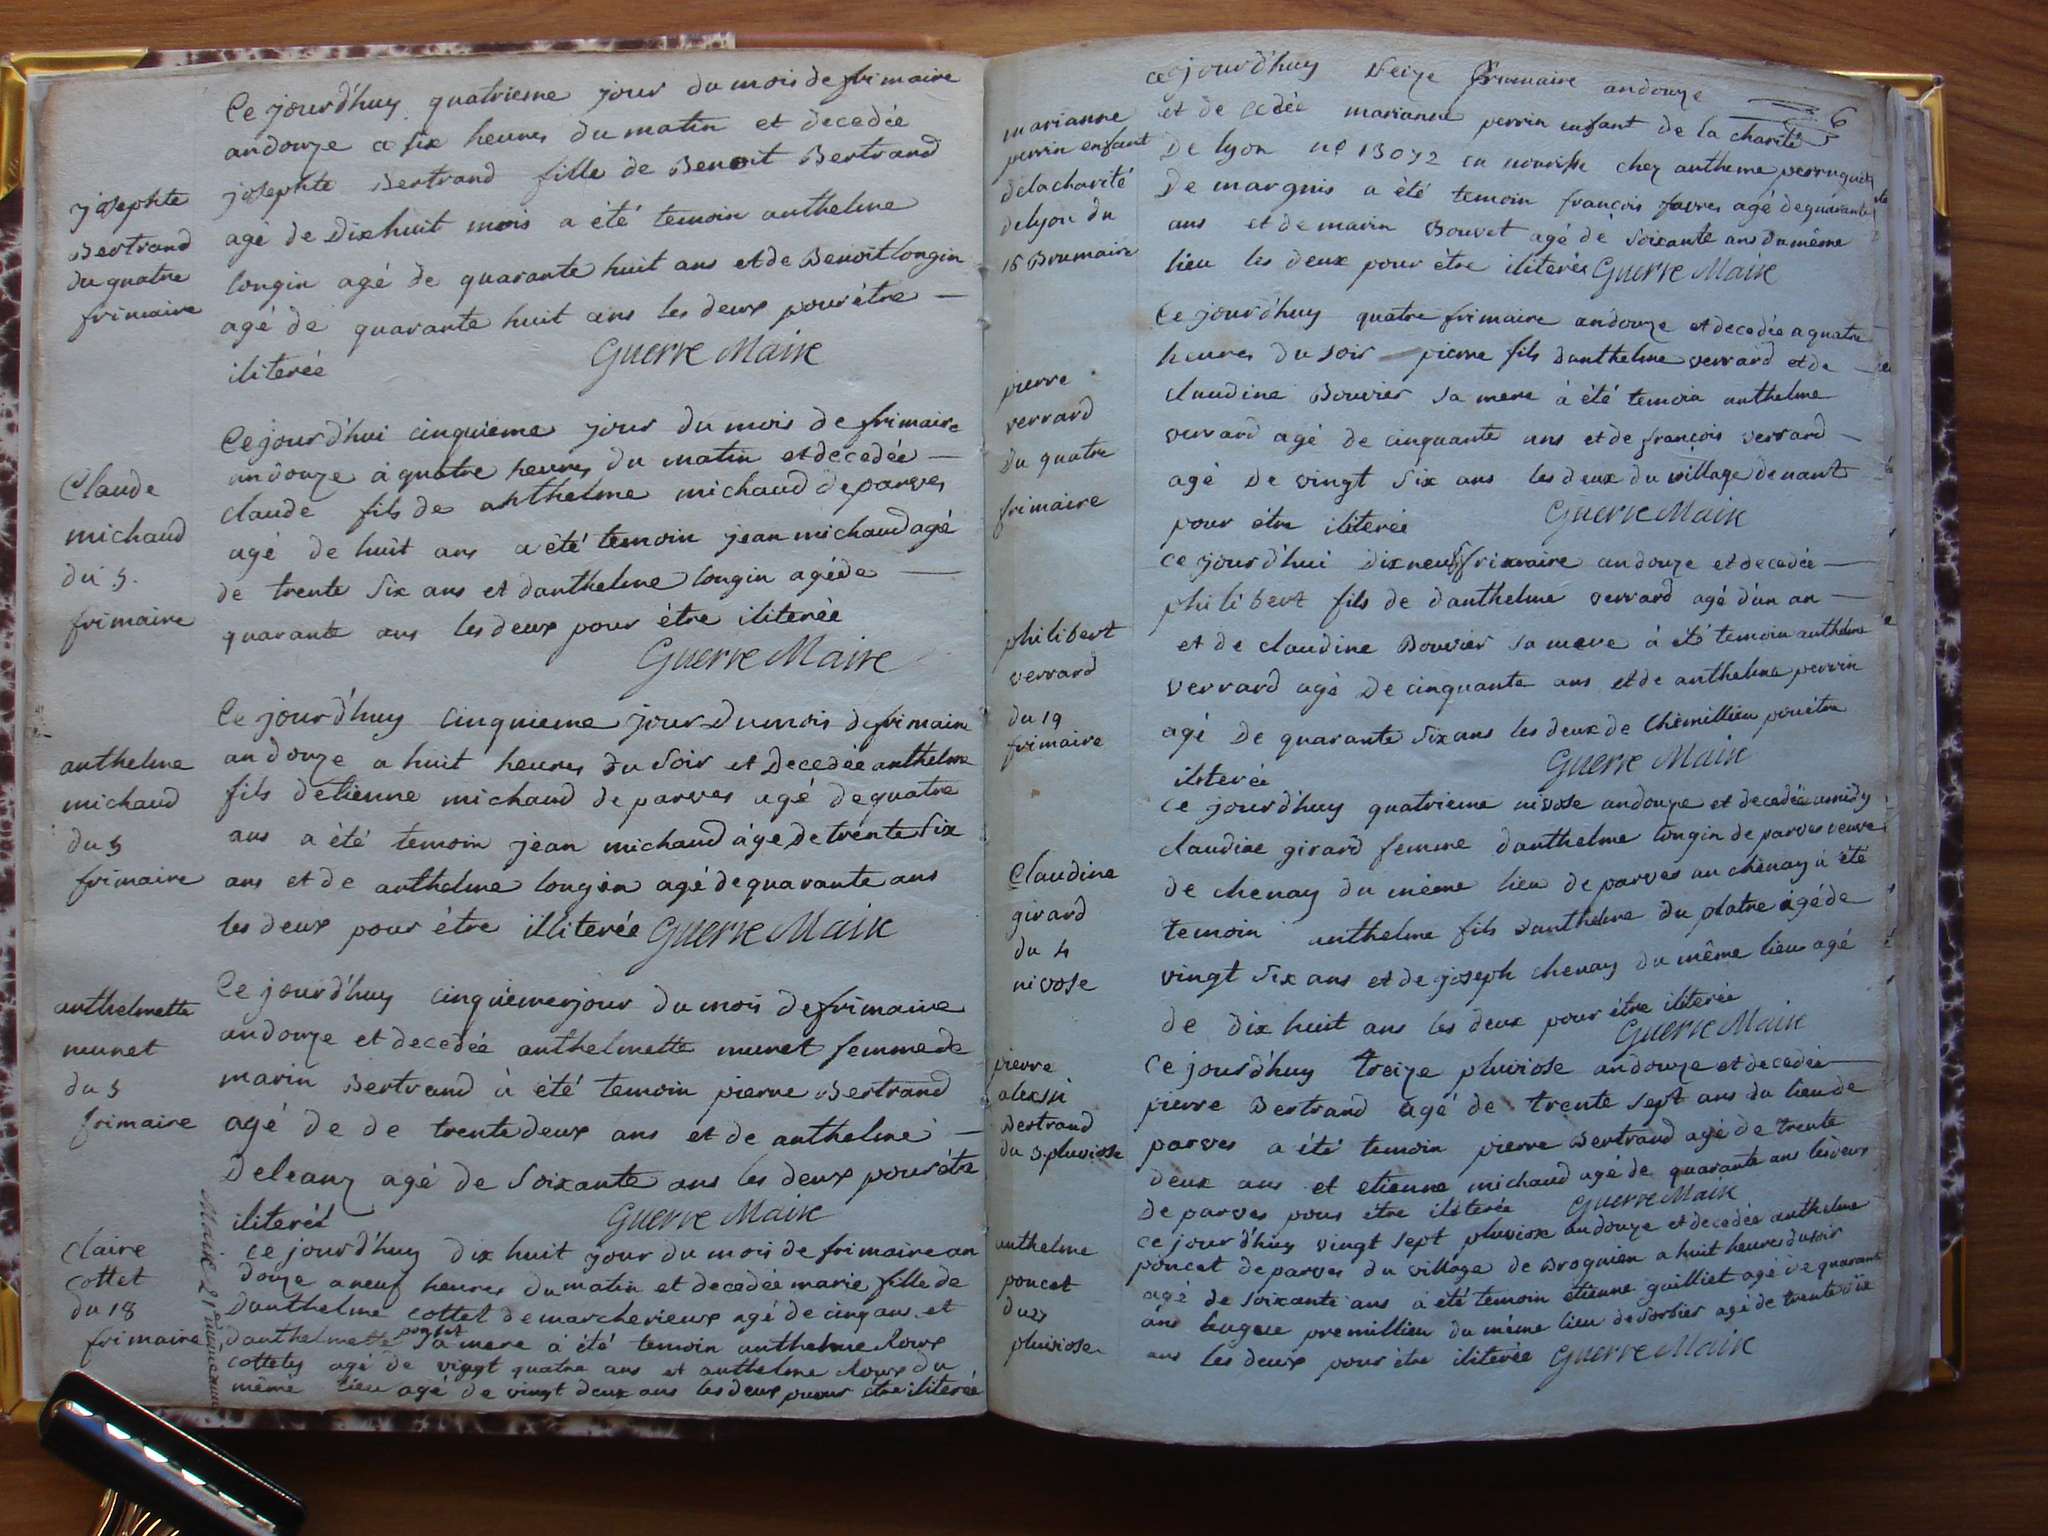 Ce jourd'huy quatrieme jour du mois de frimaire
andouze a six heures du matin et decedée
josephte Bertrand fille de Benoit Bertrand
agé de Dixhuit mois a été temoin anthelme
longin agé de quarante huit ans et de Benoit longin
agé de quarante huit ans les deux pour être
iliterée Guerre Maire
josephte
Bertrand
du quatre
frimaire
Ce jourd'hui cinquieme jour du mois de frimaire
andouze a quatre heures du matin et decedée
claude fils de anthelme michaud de parves
agé de huit ans a été temoin jean michaud agé
de trente six ans et danthelme longin agé de
quarante ans les deux pour être iliterée
Guerre Maire
Claude
michaud
du 5
frimaire
Ce jourd'huy cinquieme jour du mois de frimaire
andouze a huit heures du soir et Decedée anthelme
fils detienne michaud de parves agé de quatre
ans a été temoin jean michaud agé de trente six
ans et de anthelme longin agé de quarante ans
les deux pour être illiterée Guerre Maire
anthelme
michaud
du 5
frimaire
Ce jourd'huy cinquieme jour du mois de frimaire
andouze et decedée anthelmette munet femme de
marin Bertrand à été temoin pierre Bertrand
agé de de trente deux ans et de anthelme
Deleanz agé de soixante ans les deux pour être
iliterée Guerre Maire
anthelmette
munet
du 5
frimaire
ce jourd'huy dix huit jour du mois de frimaire an
douze a neuf heures du matin et decedée marie fille de
Danthelme cottet de marcherieux agé de cinq ans et
danthelmette sa mere à été temoin anthelme Roux
agé de vingt quatre ans et anthelme Roux du
même lieu agé de vingt deux ans les deux pour être iliterée
Claire
cottet
du 18
frimaire
Maire
6
ce jourd'huy seize frimaire andouze
et de cedée marianne perrin enfant de la charité
De lyon n° 13072 en nourisse chez antheme perruquet
De margnis a été temoin françois favres agé de quarante
ans et de marin Bouvet agé de soixante ans du même
lieu les deux pour être iliterés Guerre Maire
marianne
perrin enfant
de la charité
de lyon du
16 Brumaire
Ce jourd'huy quatre frimaire andouze et decedée a quatre
heures du soir pierre fils danthelme verrard et de
claudine Bouvier sa mere à été temoin anthelme
verrard agé de cinquante ans et de françois verrard
agé de vingt six ans les deux du village de nant
pour être iliterée Guerre Maire
pierre
verrard
du quatre
frimaire
ce jourd'hui dixneuf frimaire andouze et decedée
philibert fils de danthelme verrard agé d'un an
et de claudine Bouvier sa mere à été temoin anthelme
verrard agé De cinquante ans et de anthelme perrin
agé De quarante six ans les deux de Chémillieu pour être
iliterée Guerre Maire
philibert
verrard
du 19
frimaire
ce jourd'huy quatrieme nivose andouze et decedée a midy
claudine girard femme danthelme longin de parves veuve
de chenay du même lieu de parves au chenay à été
temoin anthelme fils danthelme du platre agé de
vingt six ans et de joseph chenay du même lieu agé
de dix huit ans les deux pour être iliterée
Guerre Maire
Claudine
girard
du 4
nivose
Ce jourd'huy treize pluviose andouze et decedée
pierre Bertrand agé de trente sept ans du lieu de
parves a été temoin pierre Bertrand agé de trente
deux ans et etienne michaud agé de quarante ans les deux
de parves pour être iliterée Guerre Maire
pierre
Bertrand
du pluviose
ce jourd'huy vingt sept pluviose andouze et decedée anthelme
poncet de parves du village de Brognien a huit heures du soir
agé de soixante ans a été temoin etienne gailliet agé de quarante
ans premillieu du même lieu de sorbier agé de trente six
ans les deux pour être iliterée Guerre Maire
anthelme
poncet
du 27
pluviose